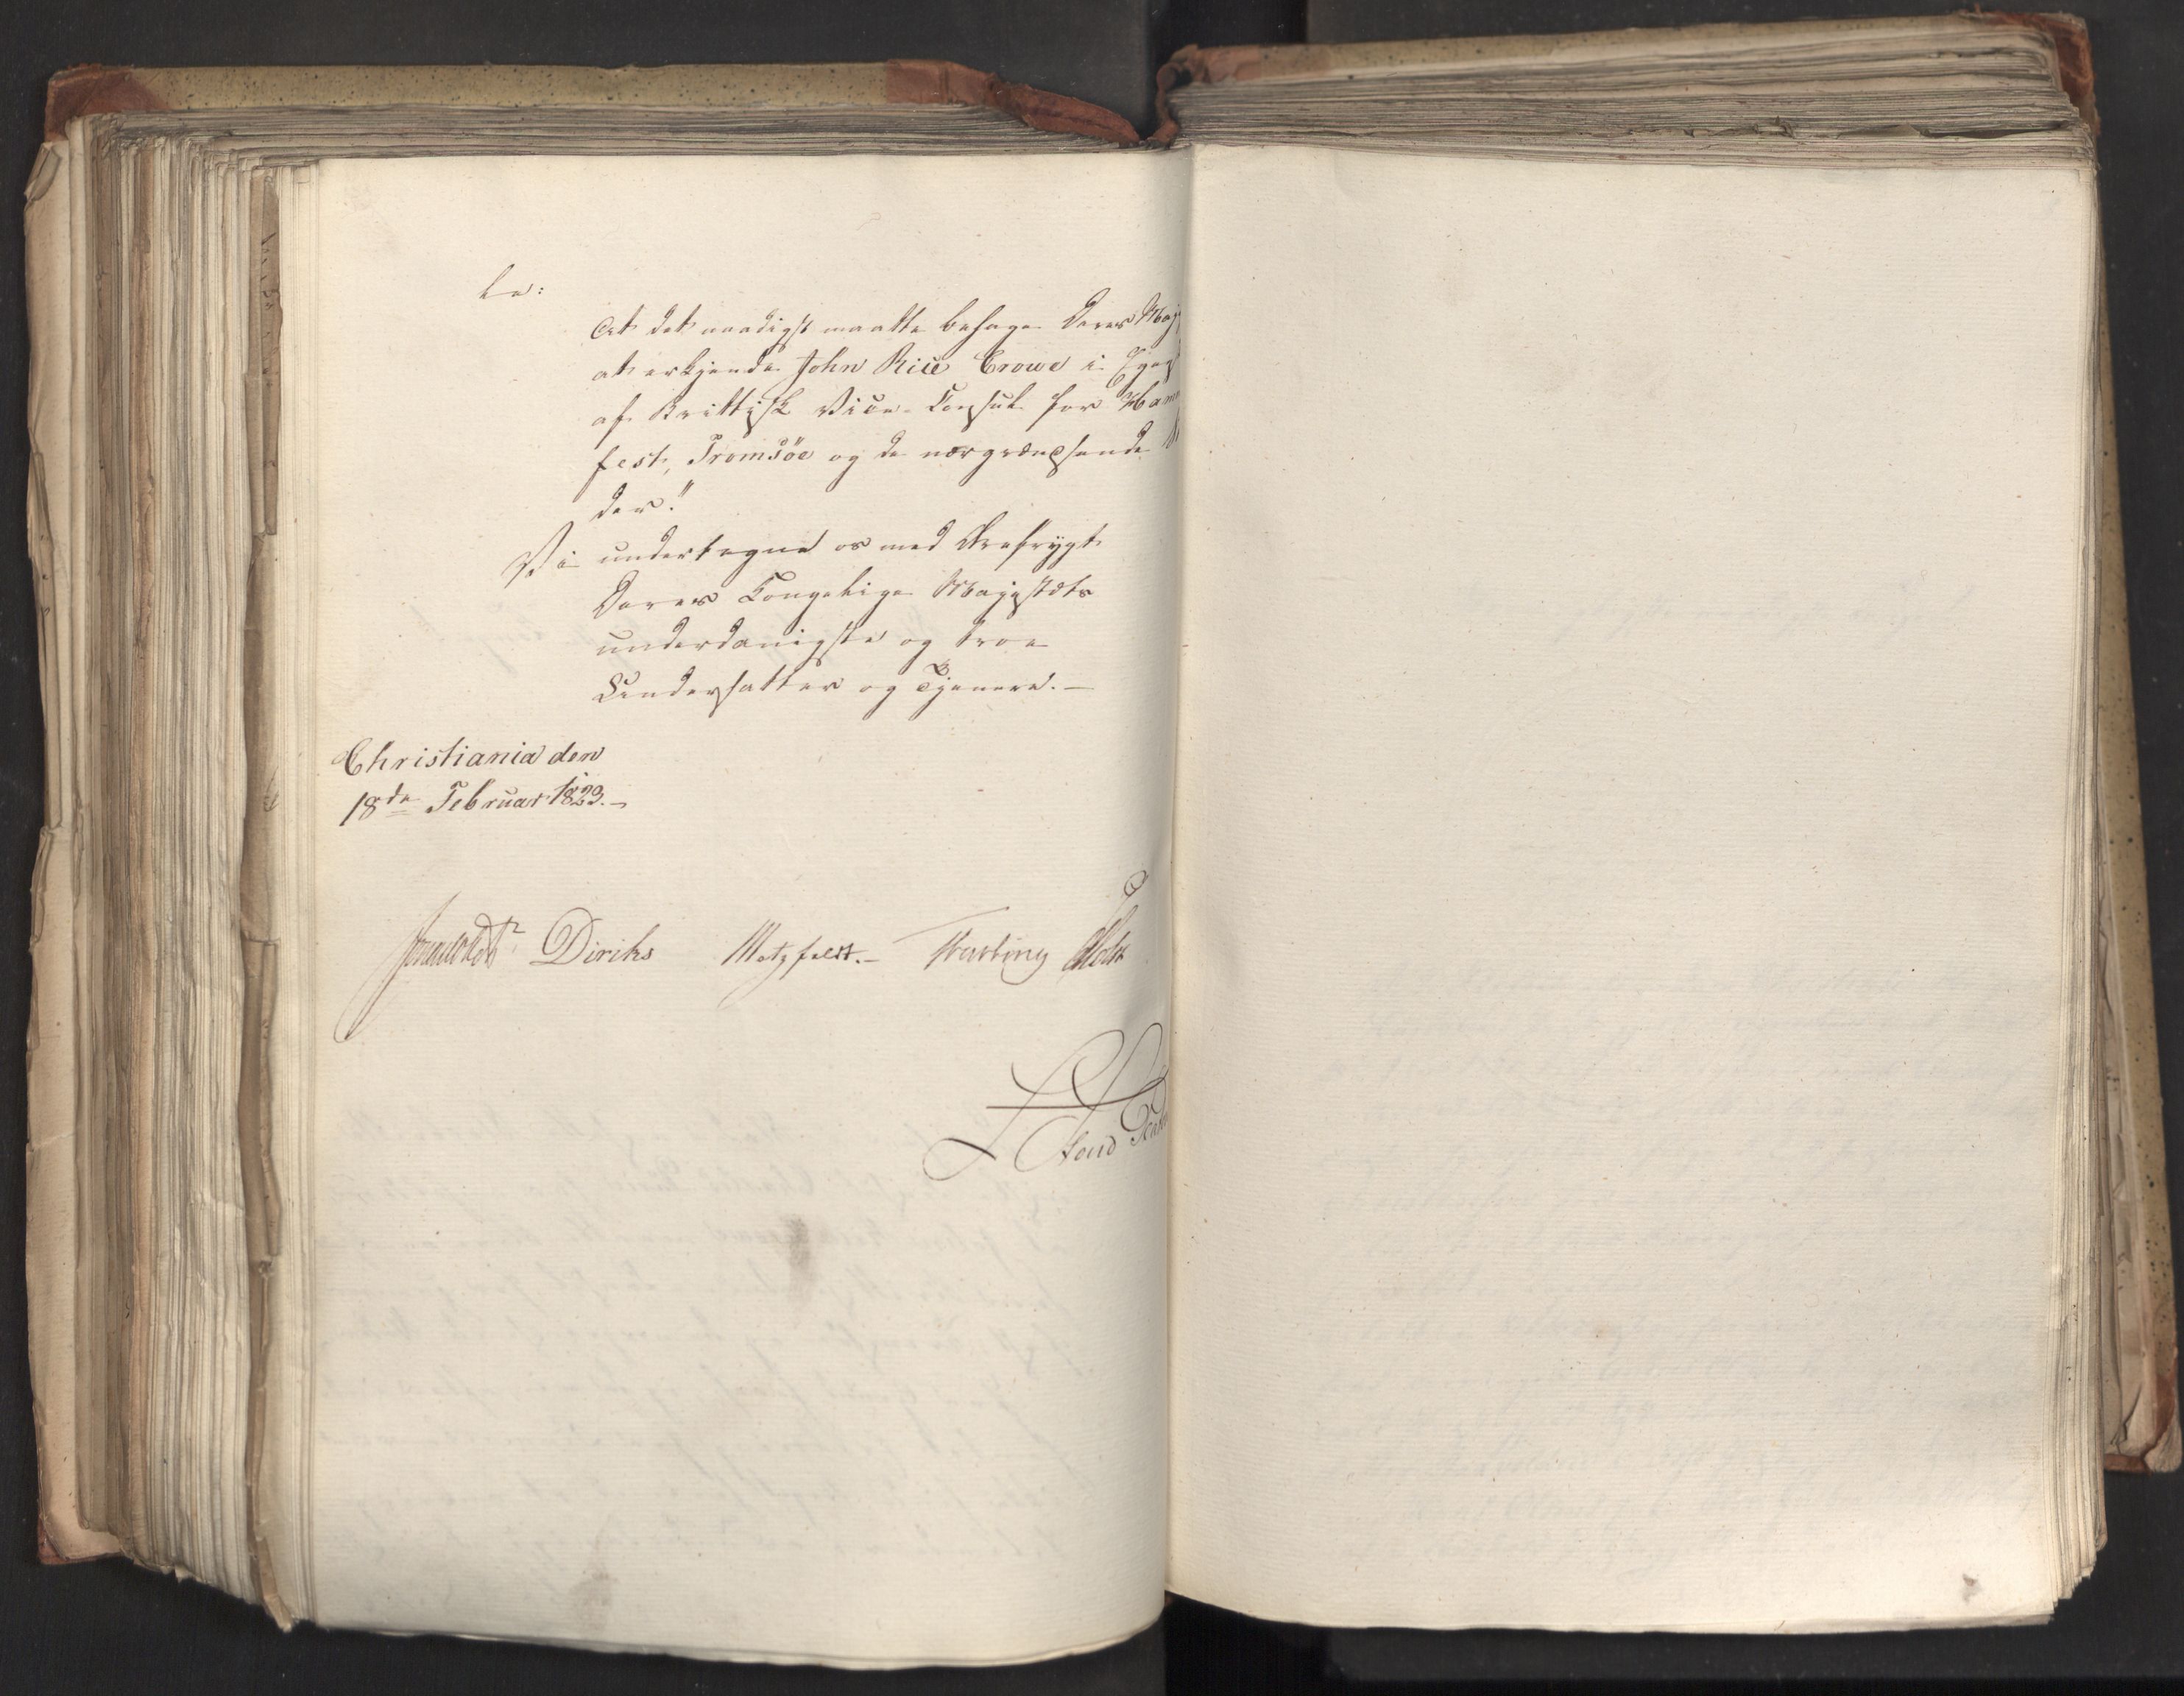 le:
At det naadigst maatte behage Deres Maj
at erkjende John Rice Crowe i Egen
af Brittisk Vice-Consul for Ham
fest, Tromsöe og de nærgrændsende
der."
Vi undertegne os med Ærefrygt
Deres Kongelige Majestæts
underdanigste og troe
Undersatter og Tjenere.—
Christiania den
18de Februar 1823.—
Diriks Motzfeldt.— Fasting Holst